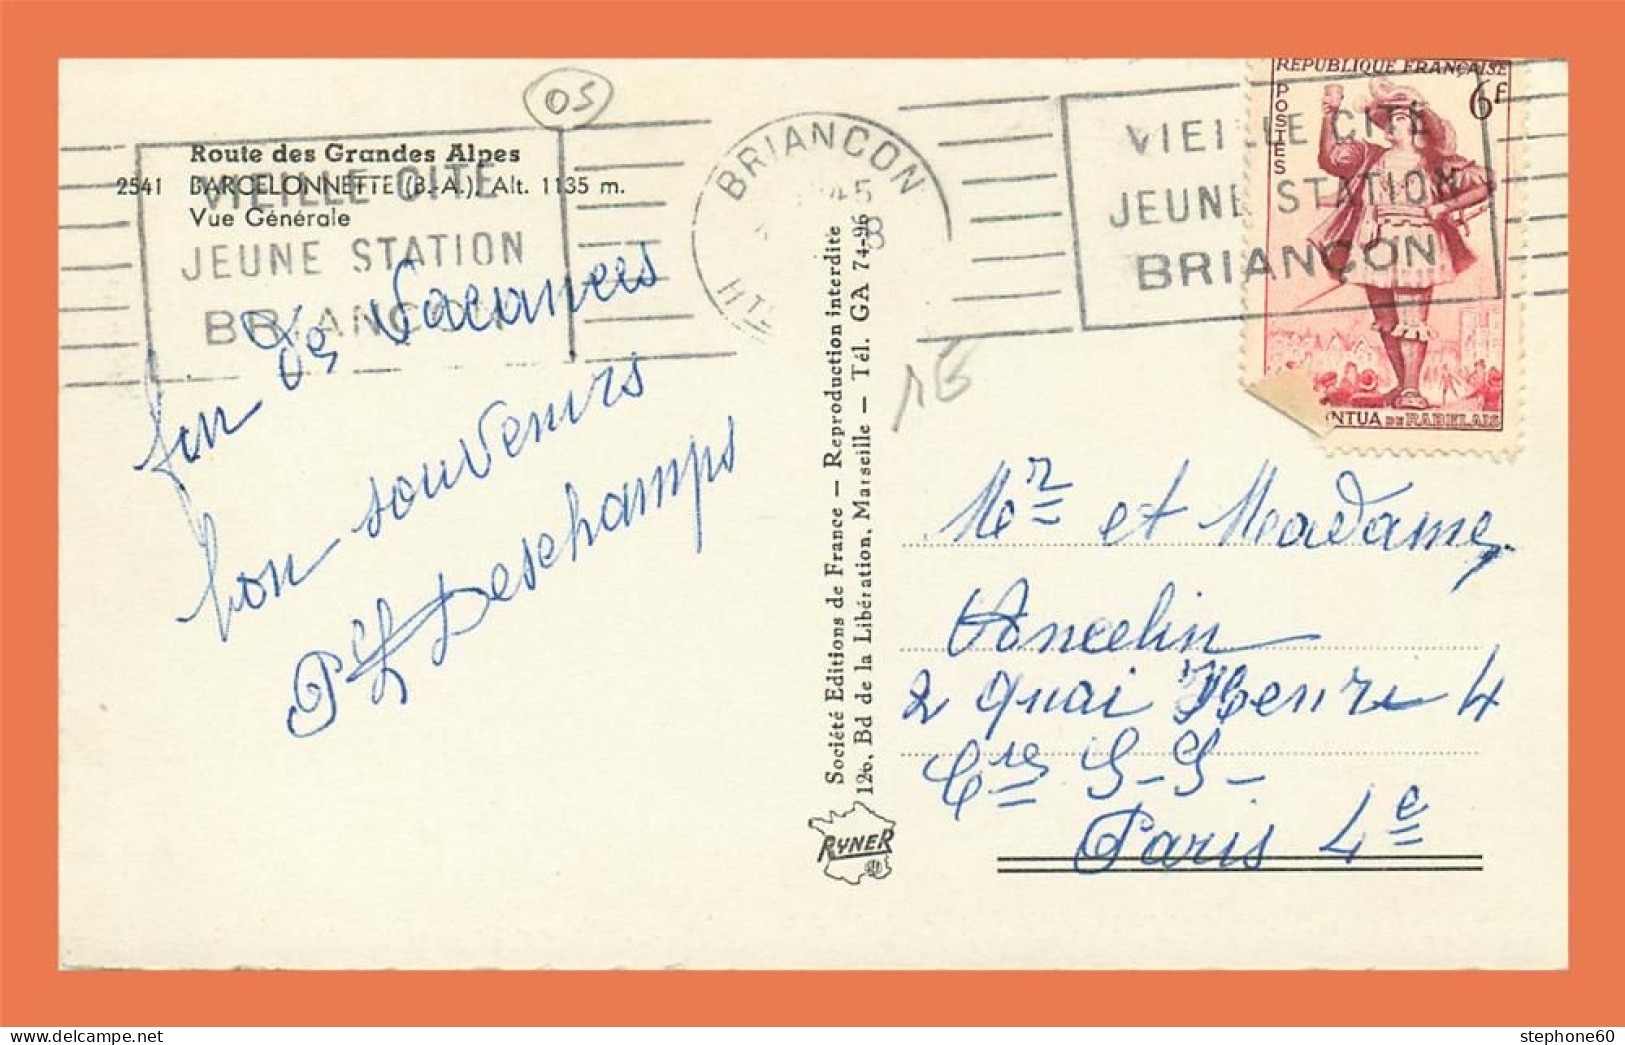 05
Route des Grandes Alpes
2541 BARCELONNETTE (B.-A.), Alt. 1135 m.
Vue Générale
VIEILLE CITÉ
JEUNE STATION
BRIANÇON
fin de Vacances
bon souvenirs
Deschamps
BRIANCON
45
8
Hte
VIEILLE CITÉ
JEUNE STATION
BRIANÇON
RÉPUBLIQUE FRANÇAISE
POSTES
6F
NTUA DE RABELAIS
Société Editions de France — Reproduction interdite
126, Bd de la Libération, Marseille — Tél. GA 74-96
RYNER
Mr et Madame
Ancelin
2 quai Henri 4
Cre S-S-
Paris 4e
stephone60